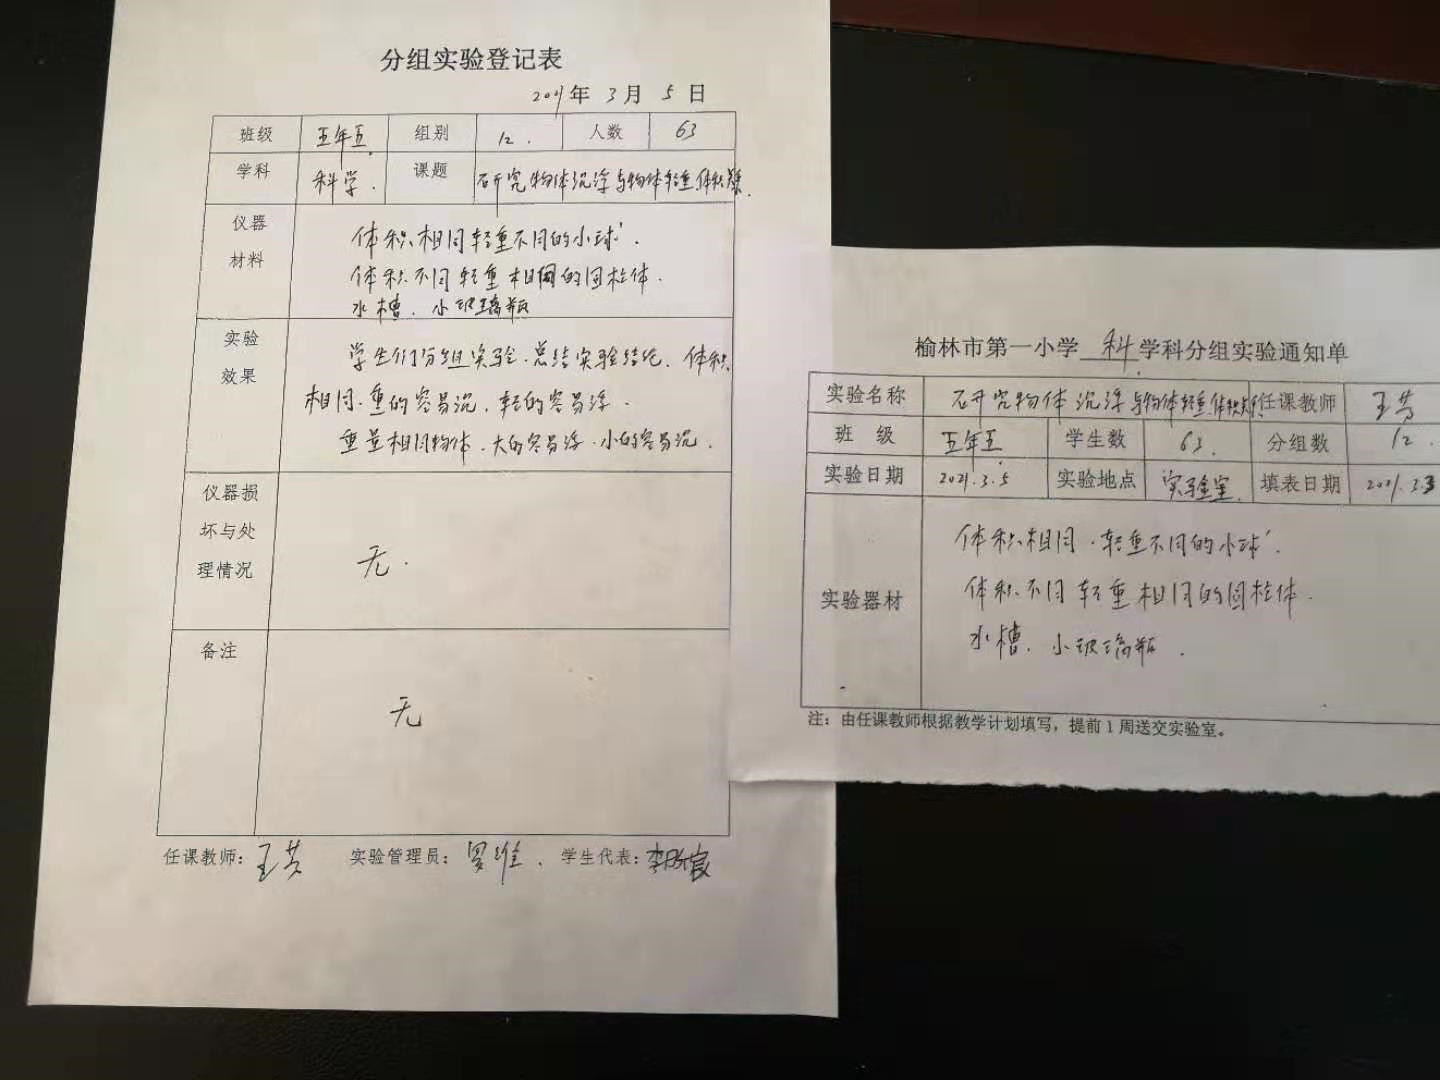 分组实验登记表
2021年 3月 5日
班级 五年五. 组别 12. 人数 63
学科 科学. 课题 研究物体沉浮与物体轻重、体积关系.
仪器材料 体积相同轻重不同的小球.
体积不同轻重相同的圆柱体.
水槽. 小玻璃瓶
实验效果 学生们分组实验.总结实验结论. 体积
相同.重的容易沉, 轻的容易浮.
重量相同物体, 大的容易浮.小的容易沉.
仪器损坏与处理情况 无.
备注 无
任课教师: 王芳 实验管理员: 罗维. 学生代表:
榆林市第一小学 科 学科分组实验通知单
实验名称 研究物体沉浮与物体轻重、体积关系 任课教师 王芳
班 级 五年五 学生数 63. 分组数 12.
实验日期 2021.3.5 实验地点 实验室. 填表日期 2021.3.3
实验器材 体积相同.轻重不同的小球.
体积不同轻重相同的圆柱体.
水槽. 小玻璃瓶.
注：由任课教师根据教学计划填写，提前1周送交实验室。